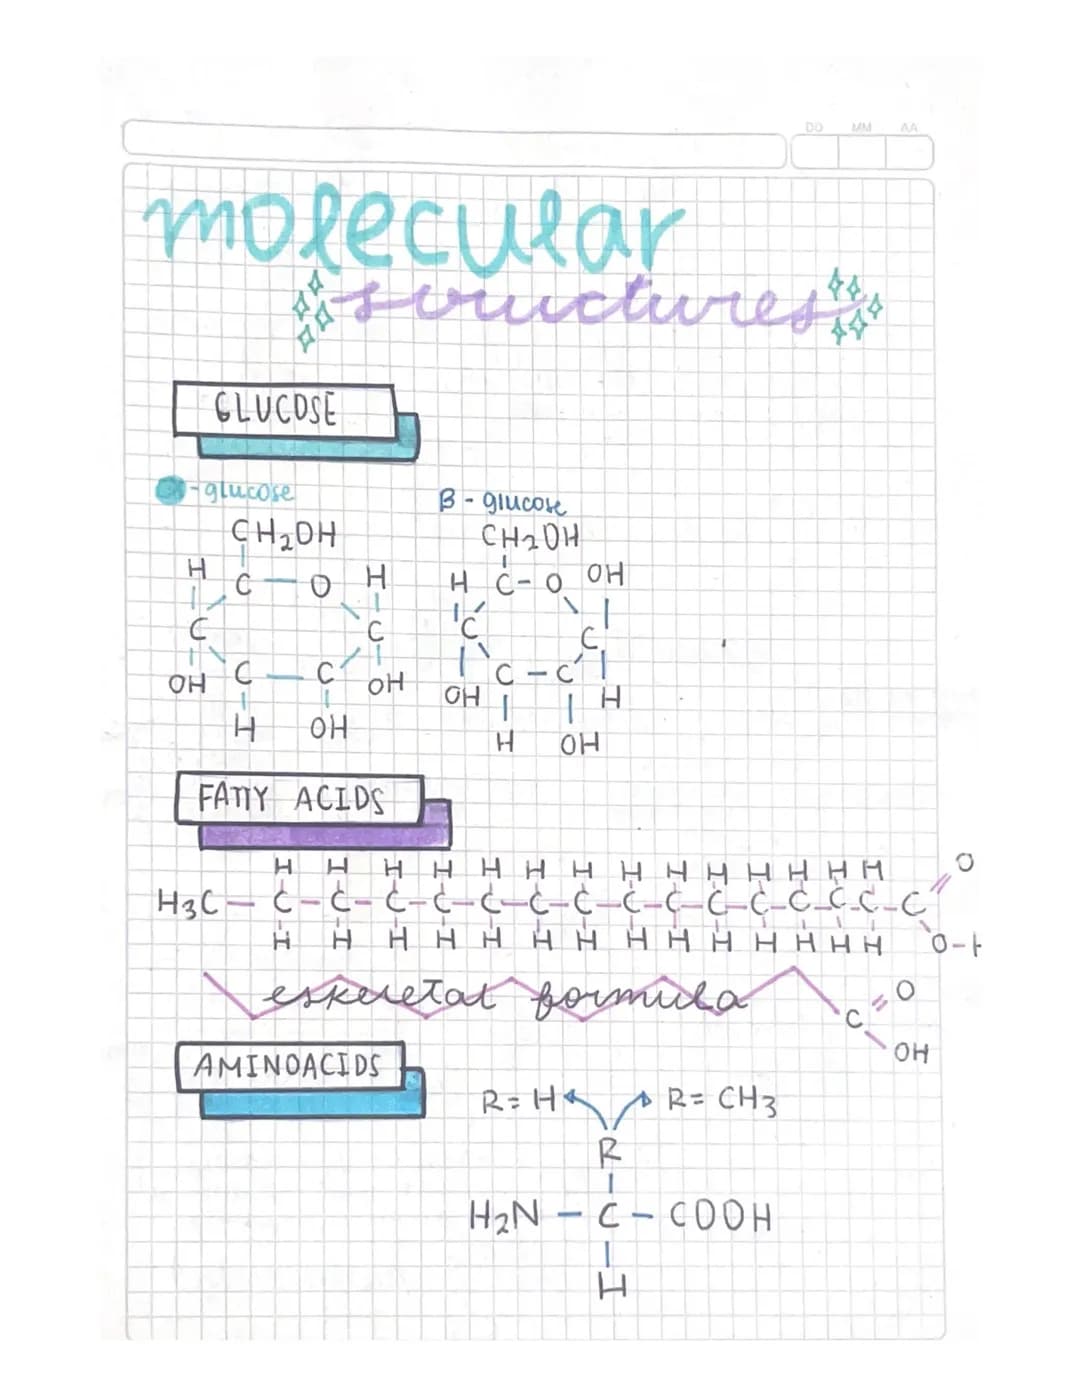 DD MM AA
molecular
structures
GLUCOSE
α-glucose
B - glucose
CH2OH
CH2OH
H C — O H
H C - O OH
C C
C C
OH C — C OH
OH C - C H
H OH
H OH
FATTY ACIDS
H H H H H H H H H H H H H H O
H3C — C - C - C - C - C - C - C - C - C - C - C - C - C - C - C
H H H H H H H H H H H H H H O-H
eskeletal formula
C O
OH
AMINOACIDS
R= H R= CH3
R
H2N — C — COOH
H